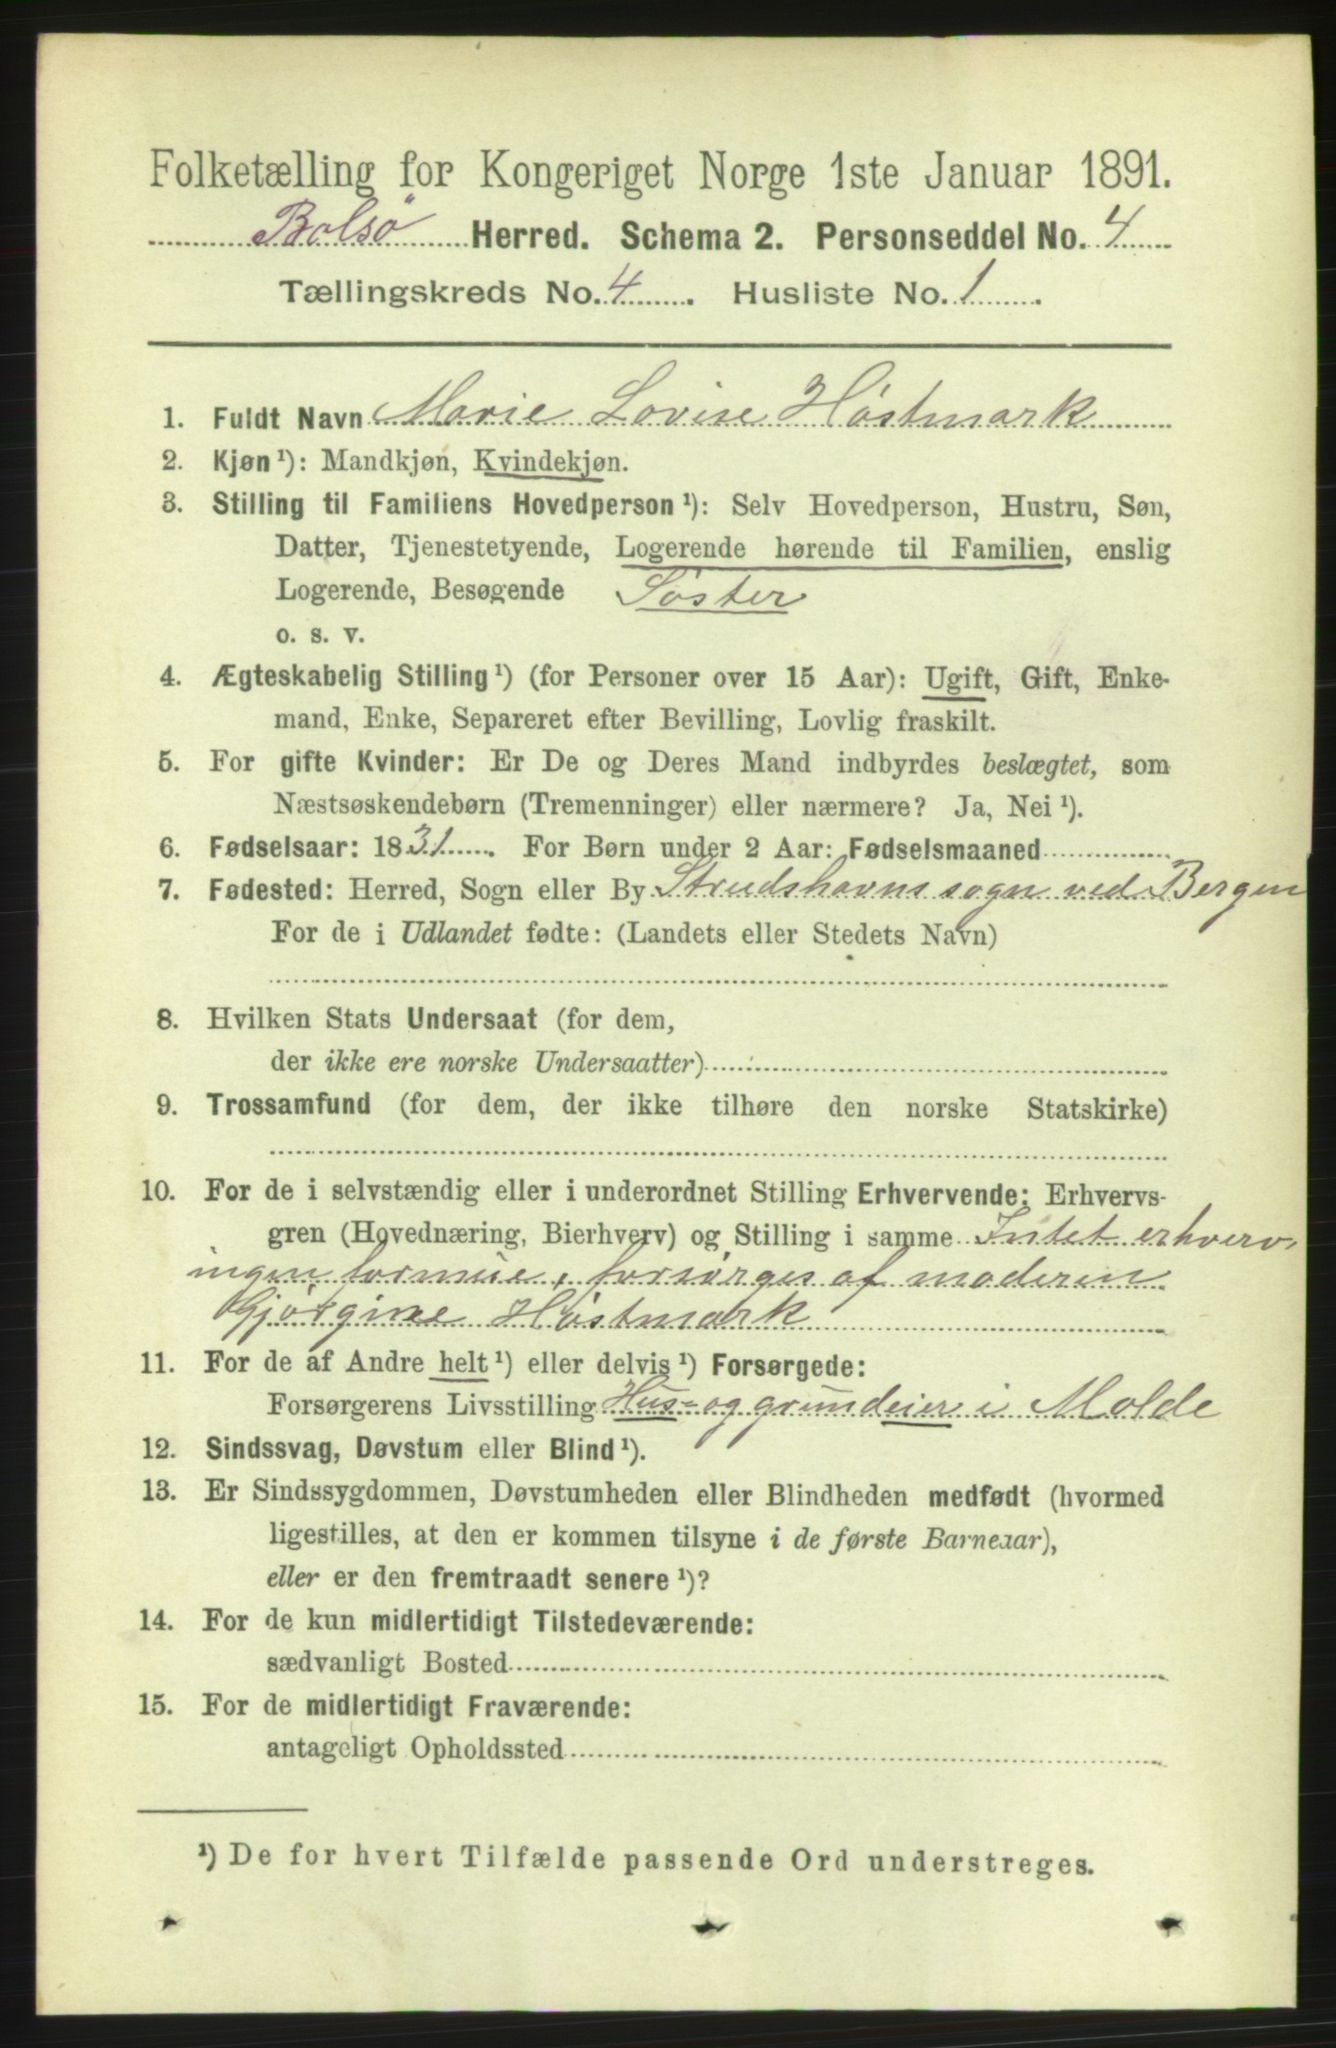 Folketælling for Kongeriget Norge 1ste Januar 1891.
Bolsö Herred. Schema 2. Personseddel No. 4
Tællingskreds No. 4. Husliste No. 1.
1. Fuldt Navn Marie Lovise Höstmark
2. Kjøn ¹): Mandkjøn, Kvindekjøn.
3. Stilling til Familiens Hovedperson ¹): Selv Hovedperson, Hustru, Søn,
Datter, Tjenestetyende, Logerende hørende til Familien, enslig
Logerende, Besøgende Söster
o. s. v.
4. Ægteskabelig Stilling ¹) (for Personer over 15 Aar): Ugift, Gift, Enke-
mand, Enke, Separeret efter Bevilling, Lovlig fraskilt.
5. For gifte Kvinder: Er De og Deres Mand indbyrdes beslægtet, som
Næstsøskendebørn (Tremenninger) eller nærmere? Ja, Nei ¹).
6. Fødselsaar: 1831. For Børn under 2 Aar: Fødselsmaaned
7. Fødested: Herred, Sogn eller By Strudshavns sogn ved Bergen
For de i Udlandet fødte: (Landets eller Stedets Navn)
8. Hvilken Stats Undersaat (for dem,
der ikke ere norske Undersaatter)
9. Trossamfund (for dem, der ikke tilhøre den norske Statskirke)
10. For de i selvstændig eller i underordnet Stilling Erhvervende: Erhvervs-
gren (Hovednæring, Bierhverv) og Stilling i samme Intet erhverv,
ingen formue, forsörges af moderen
Gjörgine Höstmark
11. For de af Andre helt ¹) eller delvis ¹) Forsørgede:
Forsørgerens Livsstilling Hus- og grundeier i Molde
12. Sindssvag, Døvstum eller Blind ¹).
13. Er Sindssygdommen, Døvstumheden eller Blindheden medfødt (hvormed
ligestilles, at den er kommen tilsyne i de første Barneaar),
eller er den fremtraadt senere ¹)?
14. For de kun midlertidigt Tilstedeværende:
sædvanligt Bosted
15. For de midlertidigt Fraværende:
antageligt Opholdssted
¹) De for hvert Tilfælde passende Ord understreges.